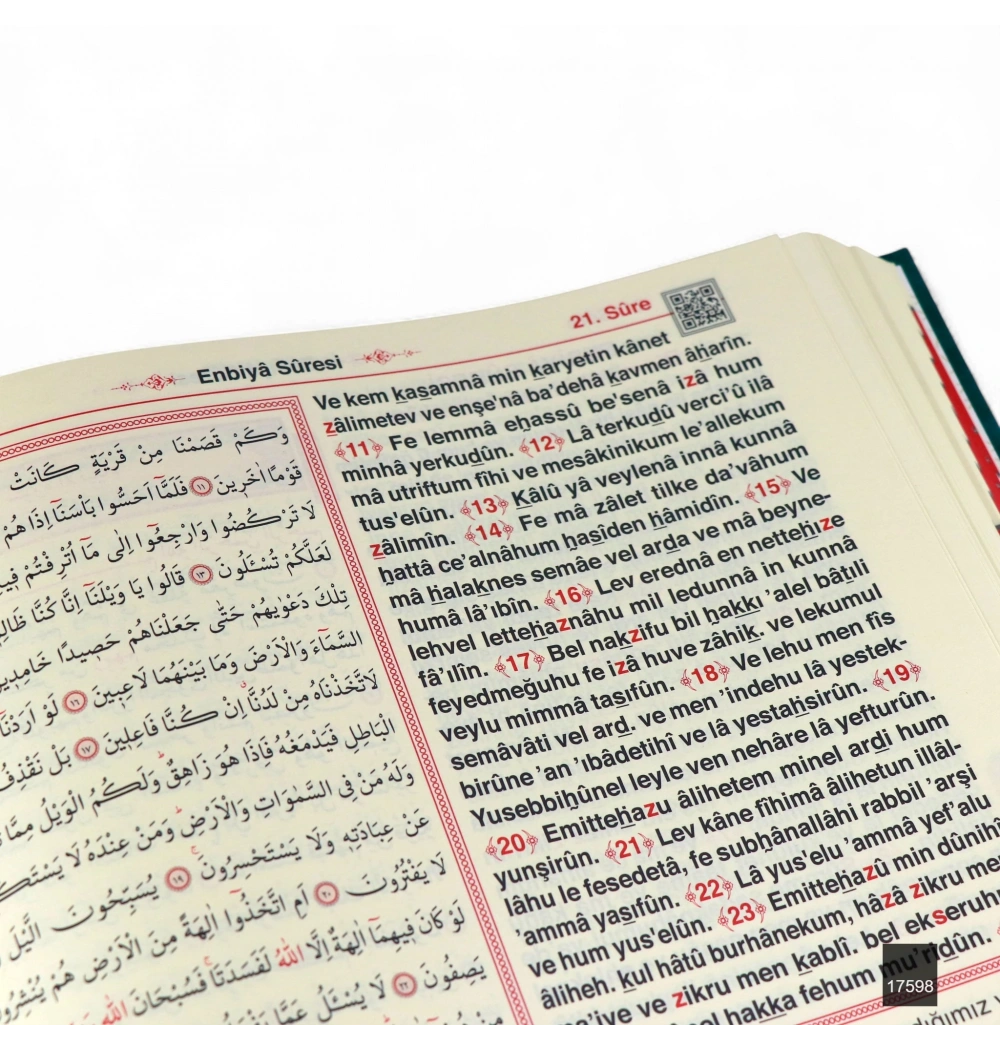 Enbiyâ Sûresi
21. Sûre
وَكَمْ قَصَمْنَا مِنْ قَرْيَةٍ كَانَتْ
قَوْمًا اٰخَرٖينَ ﴿١١﴾ فَلَمَّٓا اَحَسُّوا بَاْسَنَٓا اِذَا هُمْ
لَا تَرْكُضُوا وَارْجِعُٓوا اِلٰى مَٓا اُتْرِفْتُمْ
لَعَلَّكُمْ تُسْـَٔلُونَ ﴿١٣﴾ قَالُوا يَا وَيْلَنَٓا اِنَّا كُنَّا
تِلْكَ دَعْوٰيهُمْ حَتّٰى جَعَلْنَاهُمْ حَصٖيدًا
السَّمَٓاءَ وَالْاَرْضَ وَمَا بَيْنَهُمَا لَاعِبٖينَ ﴿١٦﴾ لَوْ اَرَدْنَٓا
لَاتَّخَذْنَاهُ مِنْ لَدُنَّٓا اِنْ كُنَّا فَاعِلٖينَ ﴿١٧﴾ بَلْ نَقْذِفُ
الْبَاطِلِ فَيَدْمَغُهُ فَاِذَا هُوَ زَاهِقٌ وَلَكُمُ الْوَيْلُ مِمَّا
وَلَهُ مَنْ فِى السَّمٰوَاتِ وَالْاَرْضِ وَمَنْ عِنْدَهُ لَا
عَنْ عِبَادَتِهٖ وَلَا يَسْتَحْسِرُونَ ﴿١٩﴾ يُسَبِّحُونَ الَّيْلَ
لَا يَفْتُرُونَ ﴿٢٠﴾ اَمِ اتَّخَذُٓوا اٰلِهَةً مِنَ الْاَرْضِ هُمْ يُنْشِرُونَ
لَوْ كَانَ فٖيهِمَٓا اٰلِهَةٌ اِلَّا اللّٰهُ لَفَسَدَتَا فَسُبْحَانَ اللّٰهِ
يَصِفُونَ ﴿٢٢﴾ لَا يُسْـَٔلُ عَمَّا
Ve kem kasamnâ min karyetin kânet
zâlimetev ve enşe'nâ ba'dehâ kavmen âharîn.
﴾11﴿ Fe lemmâ ehassû be'senâ izâ hum
minhâ yerkudûn. ﴾12﴿ Lâ terkudû verci'û ilâ
mâ utriftum fîhi ve mesâkinikum le'allekum
tus'elûn. ﴾13﴿ Kâlû yâ veylenâ innâ kunnâ
zâlimîn. ﴾14﴿ Fe mâ zâlet tilke da'vâhum
hattâ ce'alnâhum hasîden hâmidîn. ﴾15﴿ Ve
mâ halaknes semâe vel arda ve mâ beyne-
humâ lâ'ıbîn. ﴾16﴿ Lev erednâ en nettehıze
lehvel lettehaznâhu mil ledunnâ in kunnâ
fâ'ılîn. ﴾17﴿ Bel nakzifu bil hakkı 'alel bâtıli
feyedmeğuhu fe izâ huve zâhik. ve lekumul
veylu mimmâ tasıfûn. ﴾18﴿ Ve lehu men fîs
semâvâti vel ard. ve men 'indehu lâ yestek-
birûne 'an 'ıbâdetihî ve lâ yestahsirûn. ﴾19﴿
Yusebbihûnel leyle ven nehâre lâ yefturûn.
﴾20﴿ Emittehazu âlihetem minel ardi hum
yunşirûn. ﴾21﴿ Lev kâne fîhimâ âlihetun illâl-
lâhu le fesedetâ, fe subhânallâhi rabbil 'arşi
'ammâ yasıfûn. ﴾22﴿ Lâ yus'elu 'ammâ yef'alu
ve hum yus'elûn. ﴾23﴿ Emittehazû min dûnihî
âliheh. kul hâtû burhânekum, hâzâ zikru
ve zikru men kablî. bel ekseruhum
hakka fehum mu'ridûn.
17598